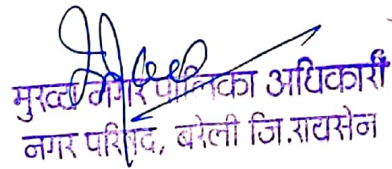 मुख्य नगर पालिका अधिकारी
नगर परिषद, बरेली जि.रायसेन